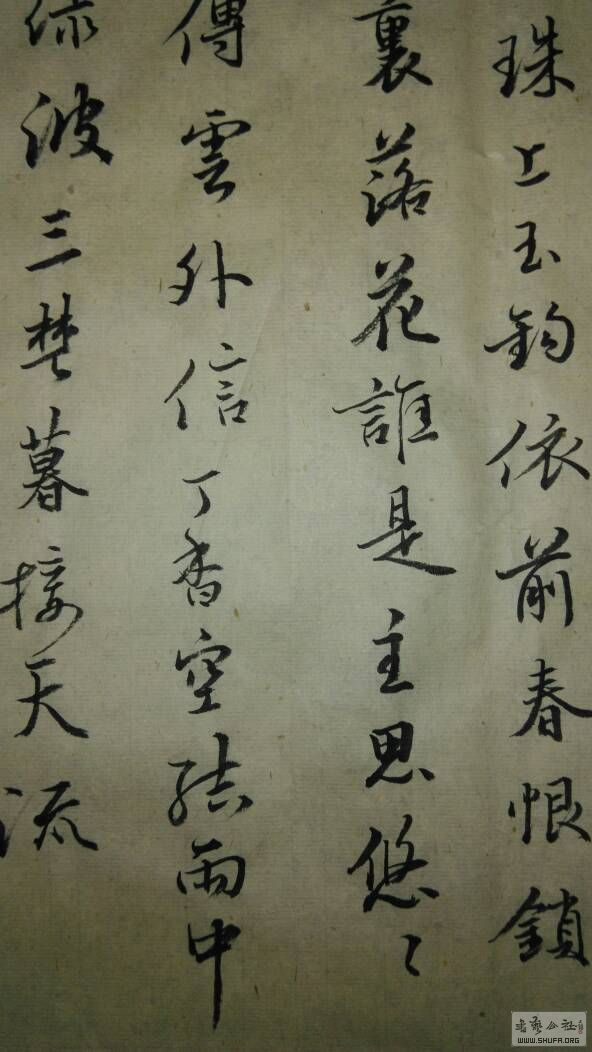 珠上玉鈎依前春恨鎖
裏落花誰是主思悠〻
傳雲外信丁香空結雨中
綠波三楚暮接天流
書藝公社
WWW.SHUFA.ORG